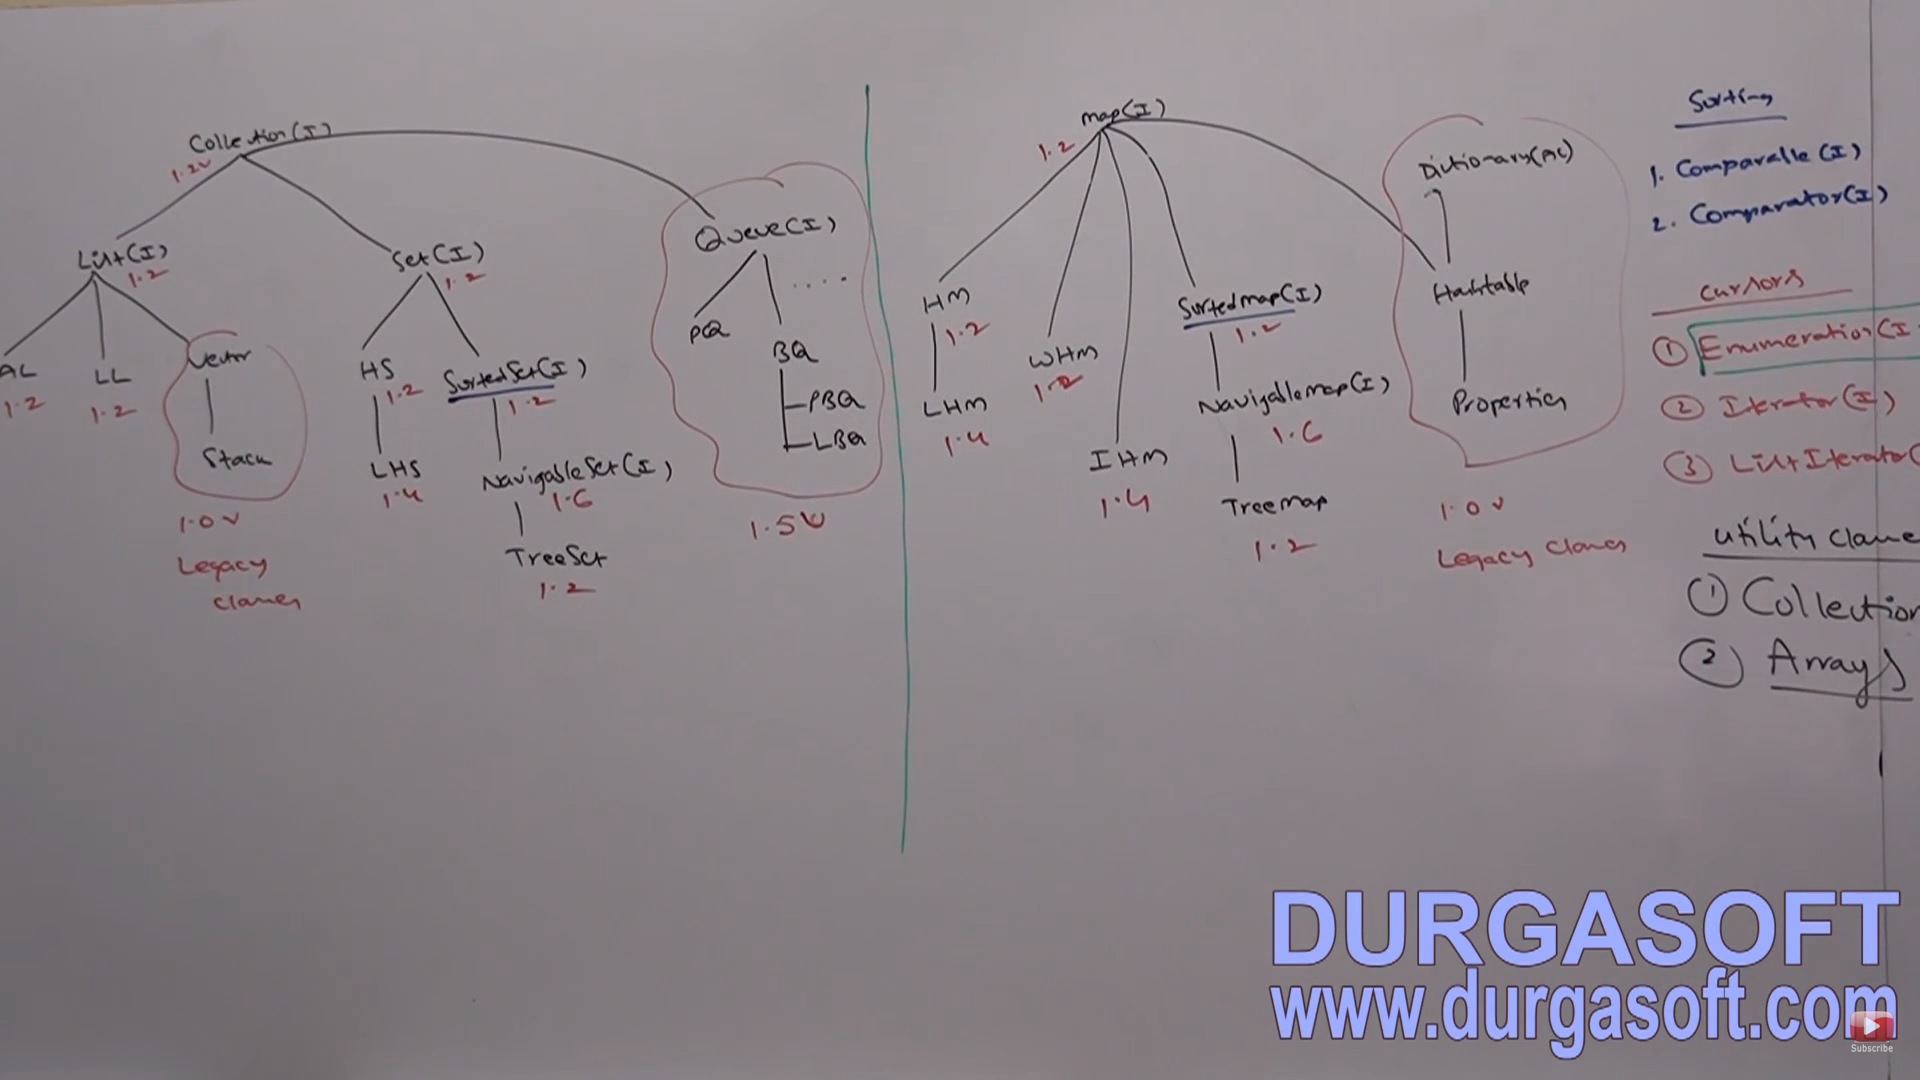 Collection(I)
1.2v
List(I)
1.2
AL
1.2
LL
1.2
Vector
Stack
1.0 v
Legacy
classes
Set(I)
1.2
HS
1.2
LHS
1.4
SortedSet(I)
1.2
NavigableSet(I)
1.6
TreeSet
1.2
Queue(I)
....
PQ
BQ
PBQ
LBQ
1.5v
map(I)
1.2
HM
1.2
LHM
1.4
WHM
1.2
IHM
1.4
Sortedmap(I)
1.2
Navigablemap(I)
1.6
Treemap
1.2
Dictionary(AC)
Hashtable
Properties
1.0 v
Legacy classes
Sorting
1. Comparable (I)
2. Comparator(I)
cursors
① Enumeration(I
② Iterator(I)
③ ListIterator(
utility classe
① Collection
② Arrays
DURGASOFT
www.durgasoft.com
Subscribe